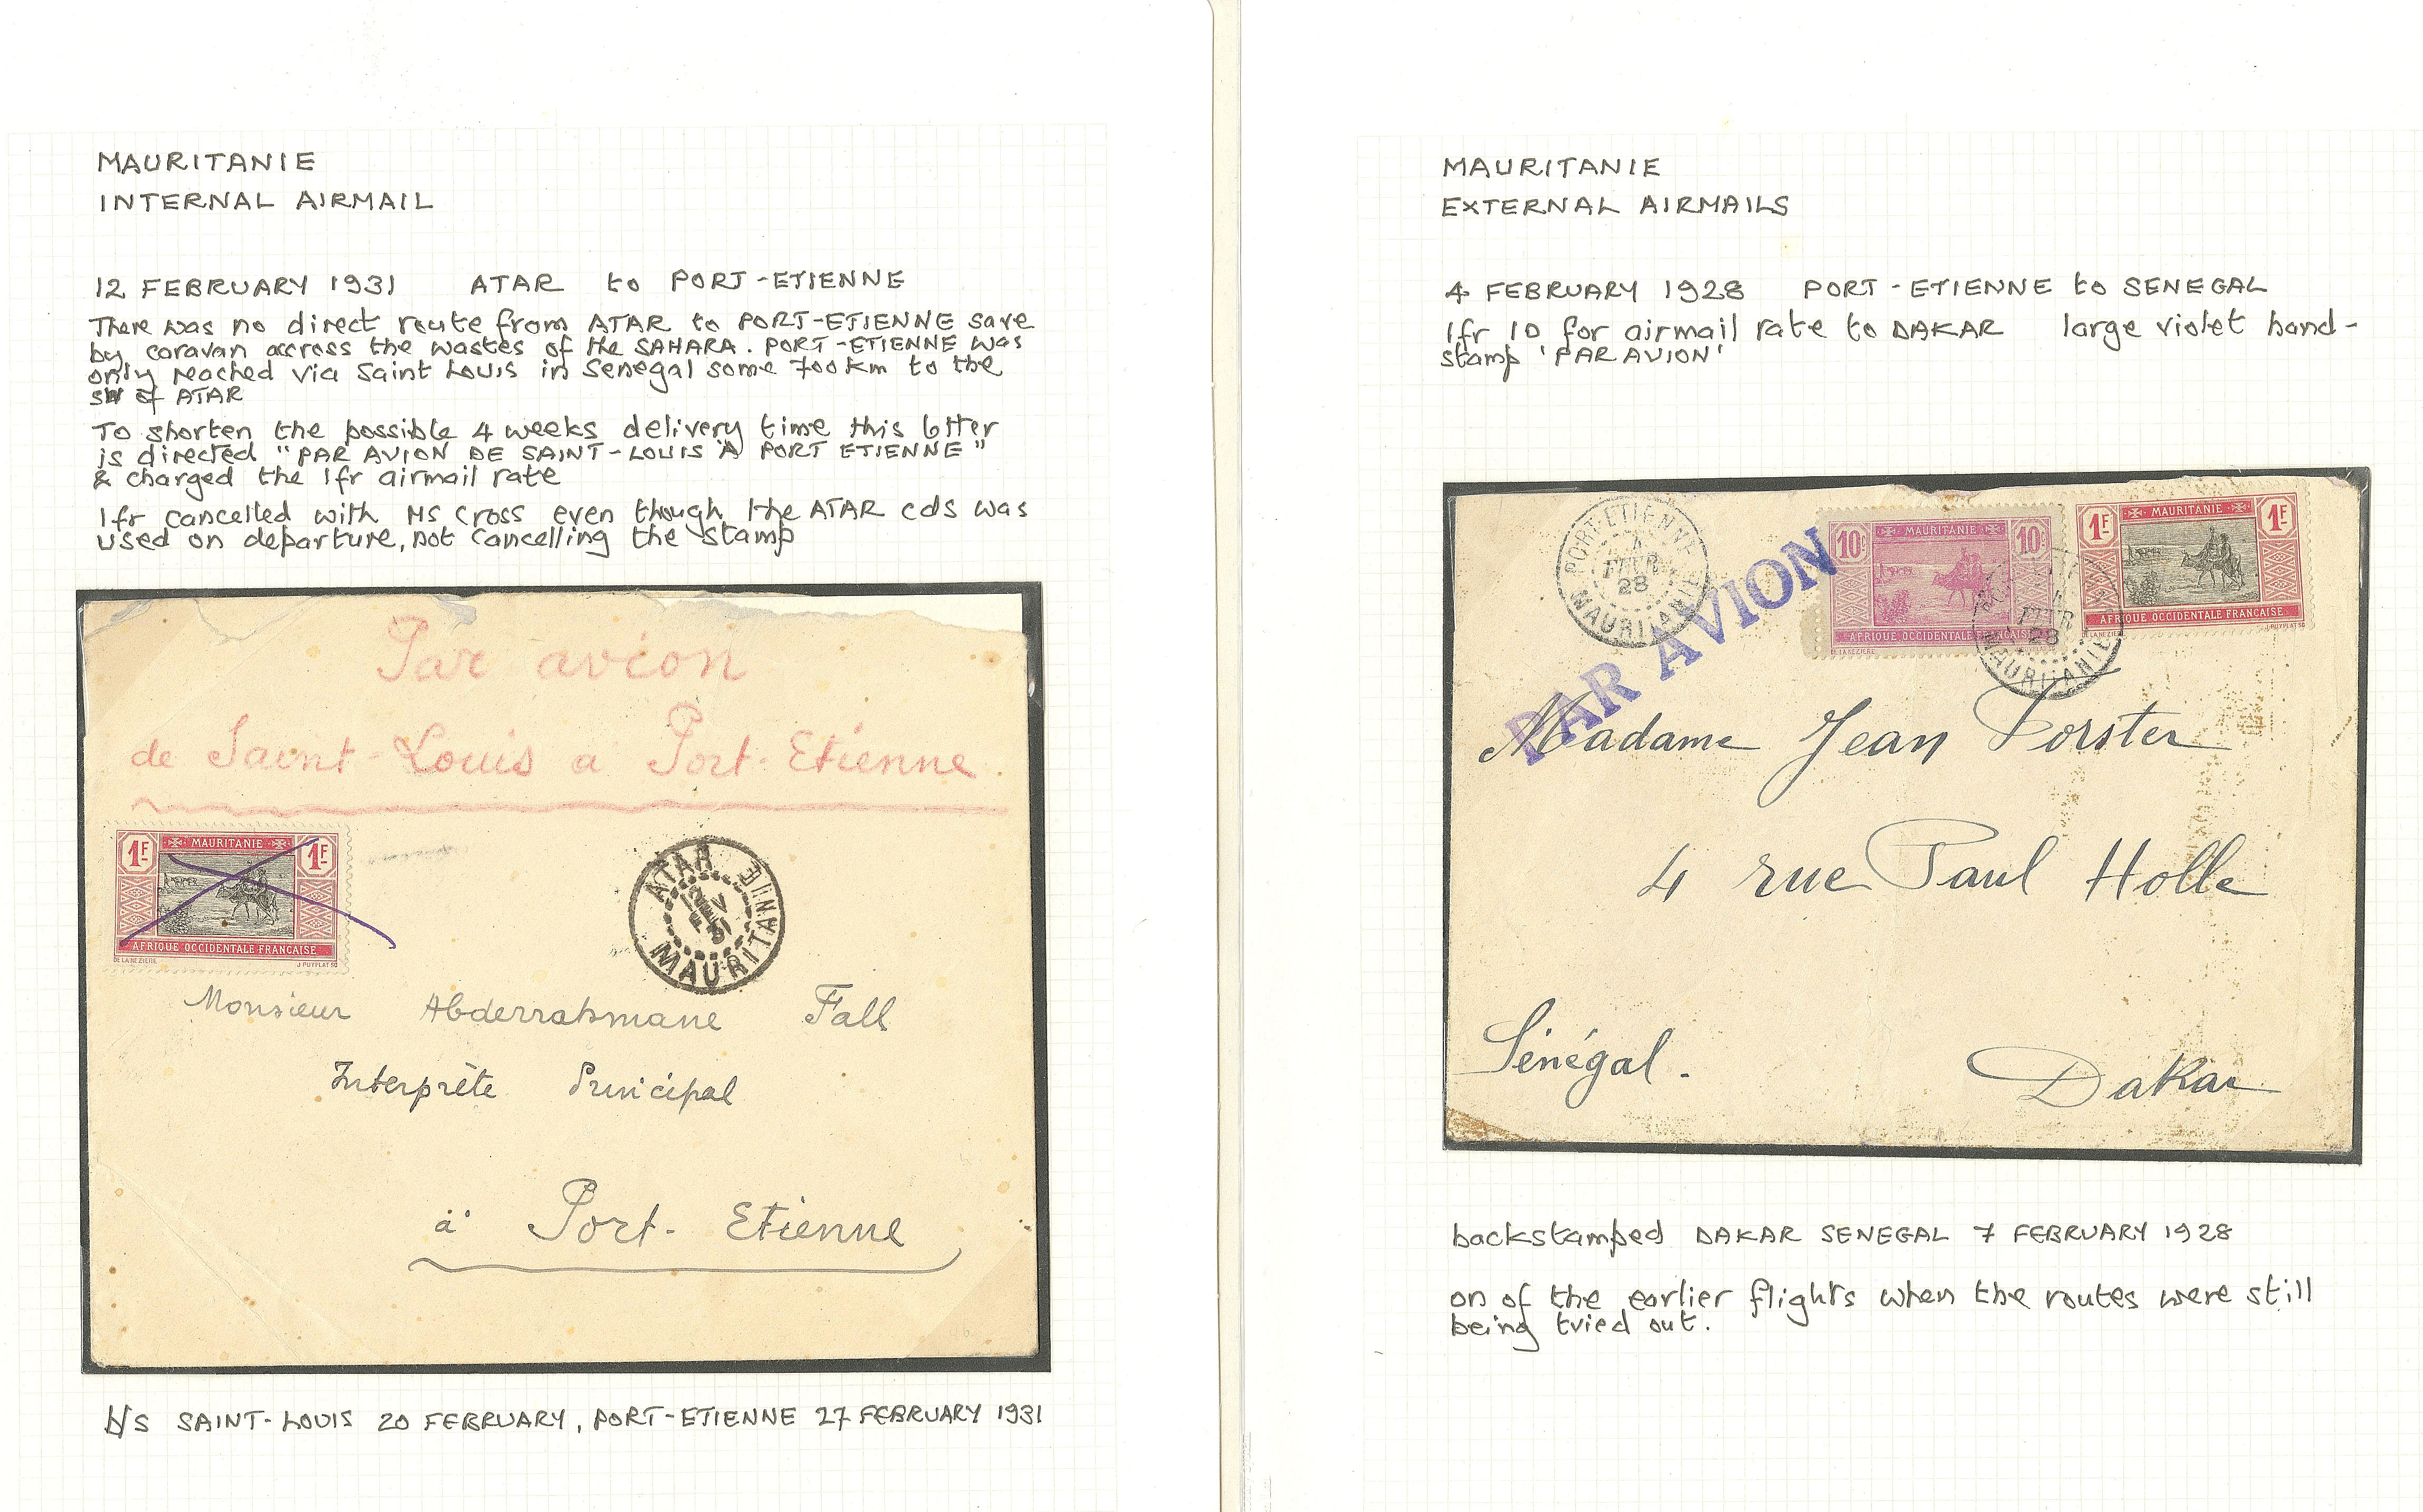 MAURITANIE
INTERNAL AIRMAIL
12 FEBRUARY 1931 ATAR to PORT-ETIENNE
There was no direct route from ATAR to PORT-ETIENNE save
by caravan accross the wastes of the SAHARA. PORT-ETIENNE was
only reached via Saint Louis in Senegal some 700km to the
SW of ATAR
To shorten the possible 4 weeks delivery time this letter
is directed "PAR AVION DE SAINT-LOUIS À PORT ETIENNE"
& charged the 1fr airmail rate
1fr cancelled with MS cross even though the ATAR cds was
used on departure, not cancelling the stamp
Par avion
de Saint-Louis a Port-Etienne
1F MAURITANIE 1F
AFRIQUE OCCIDENTALE FRANÇAISE
DE LA NEZIERE J. PUYPLAT SC
ATAR
12
31
MAURITANIE
Monsieur Abderrahmane Fall
Interprète Principal
à Port-Etienne
b/s SAINT-LOUIS 20 FEBRUARY, PORT-ETIENNE 27 FEBRUARY 1931
MAURITANIE
EXTERNAL AIRMAILS
4 FEBRUARY 1928 PORT-ETIENNE to SENEGAL
1fr 10 for airmail rate to DAKAR large violet hand-
stamp 'PAR AVION'
PORT-ETIENNE
4
FEVR
28
MAURITANIE
PAR AVION
10c MAURITANIE 10c
AFRIQUE OCCIDENTALE FRANÇAISE
DE LA NEZIERE
1F MAURITANIE 1F
AFRIQUE OCCIDENTALE FRANÇAISE
DE LA NEZIERE J. PUYPLAT SC
4
FEVR
28
MAURITANIE
Madame Jean Forster
4 rue Paul Holle
Sénégal.
Dakar
backstamped DAKAR SENEGAL 7 FEBRUARY 1928
on of the earlier flights when the routes were still
being tried out.